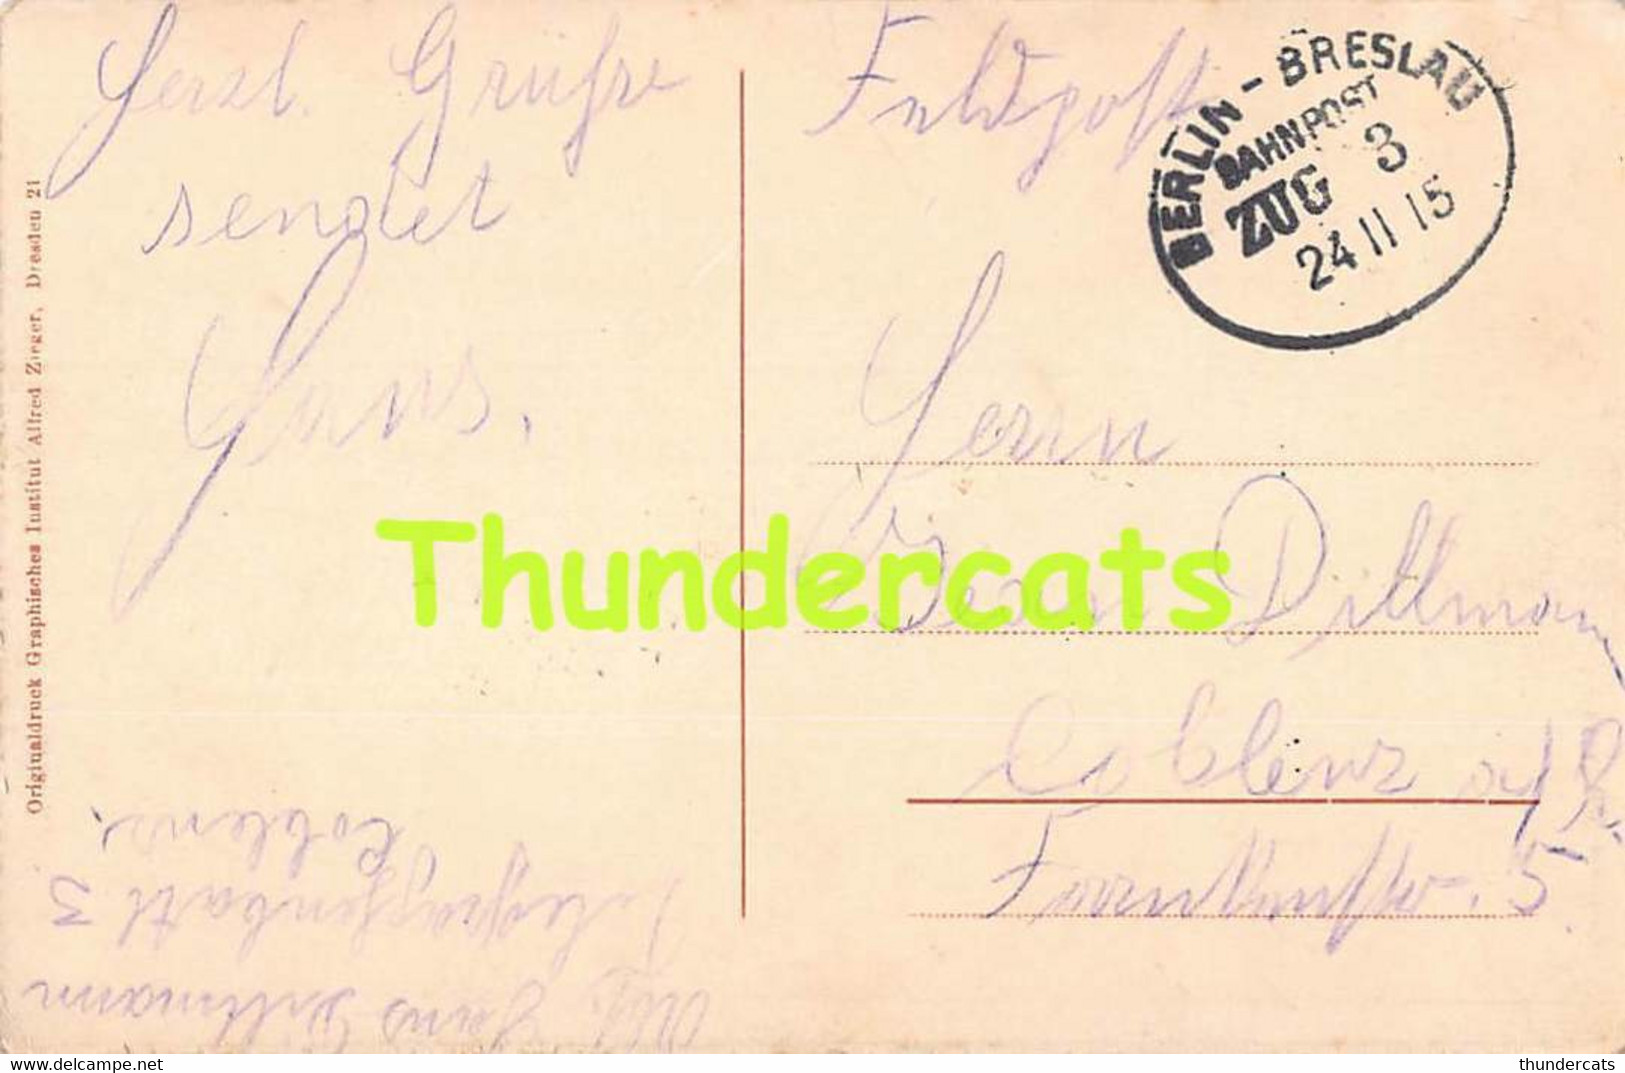 Herzl. Grüße
sendet
Hans.
Feldpost
BERLIN - BRESLAU
BAHNPOST
ZUG 3
24 11 15
Herrn
Dittmann
Coblenz a/Rh.
5
Originaldruck Graphisches Institut Alfred Zieger, Dresden 21
Abs. Hans Dittmann
Telegraphenbatl 3
Coblenz.
Thundercats
www.delcampe.net
thundercats